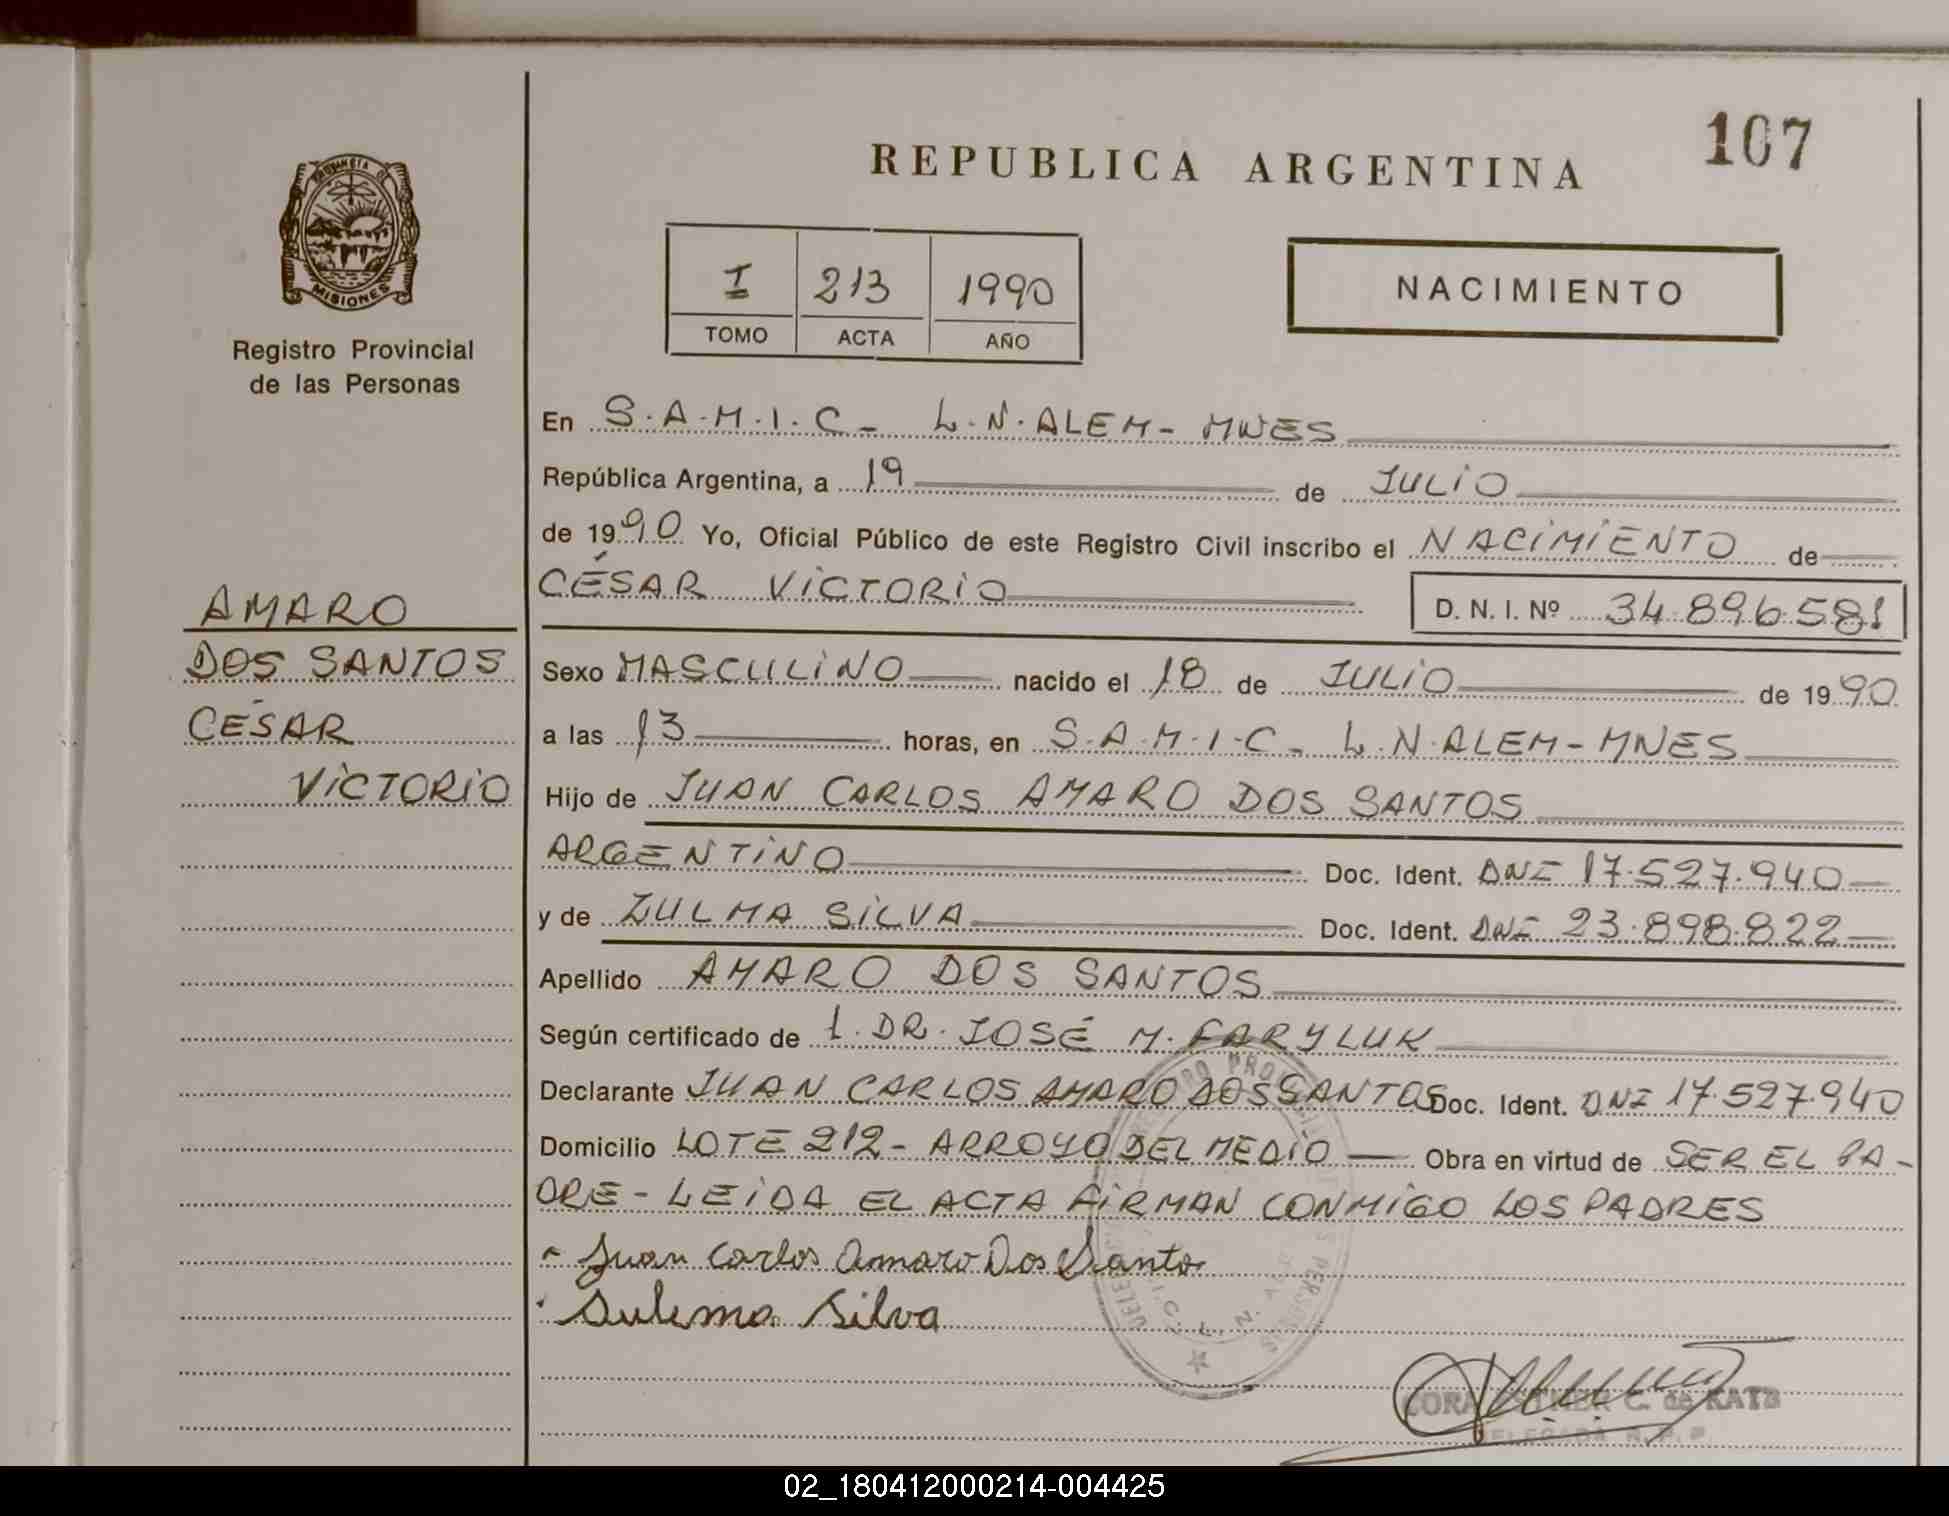 107
REPUBLICA ARGENTINA
PROVINCIA DE
MISIONES
Registro Provincial
de las Personas
I 213 1990
TOMO ACTA AÑO
NACIMIENTO
En S.A.M.I.C- L.N.ALEM- MNES
República Argentina, a 19 de JULIO
de 1990 Yo, Oficial Público de este Registro Civil inscribo el NACIMIENTO de
CÉSAR VICTORIO D. N. I. Nº 34.896.581
AMARO
DOS SANTOS
CÉSAR
VICTORIO
Sexo MASCULINO nacido el 18 de JULIO de 1990
a las 13 horas, en S.A.M.I.C- L.N.ALEM-MNES
Hijo de JUAN CARLOS AMARO DOS SANTOS
ARGENTINO Doc. Ident. DNI 17.527.940
y de ZULMA SILVA Doc. Ident. DNI 23.898.822
Apellido AMARO DOS SANTOS
Según certificado de 1. DR. JOSÉ M. FARYLUK
Declarante JUAN CARLOS AMARO DOS SANTOS Doc. Ident. DNI 17.527.940
Domicilio LOTE 212- ARROYO DEL MEDIO Obra en virtud de SER EL PA-
DRE- LEIDA EL ACTA FIRMAN CONMIGO LOS PADRES
Juan Carlos Amaro Dos Santos
Sulema Silva
C. de KATZ
DELEGADA R. P. P.
02_180412000214-004425